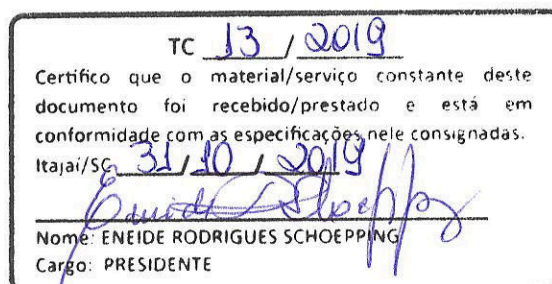 TC 13 / 2019
Certifico que o material/serviço constante deste
documento foi recebido/prestado e está em
conformidade com as especificações nele consignadas.
Itajaí/SC 31 / 10 / 2019
Nome: ENEIDE RODRIGUES SCHOEPPING
Cargo: PRESIDENTE